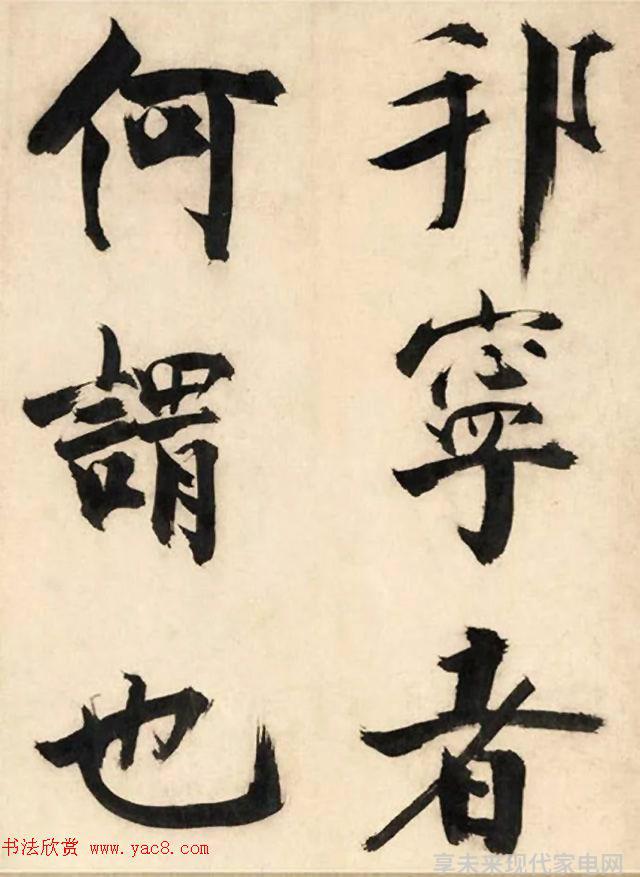 邦寧者
何謂也
书法欣赏 www.yac8.com
享未来现代家电网